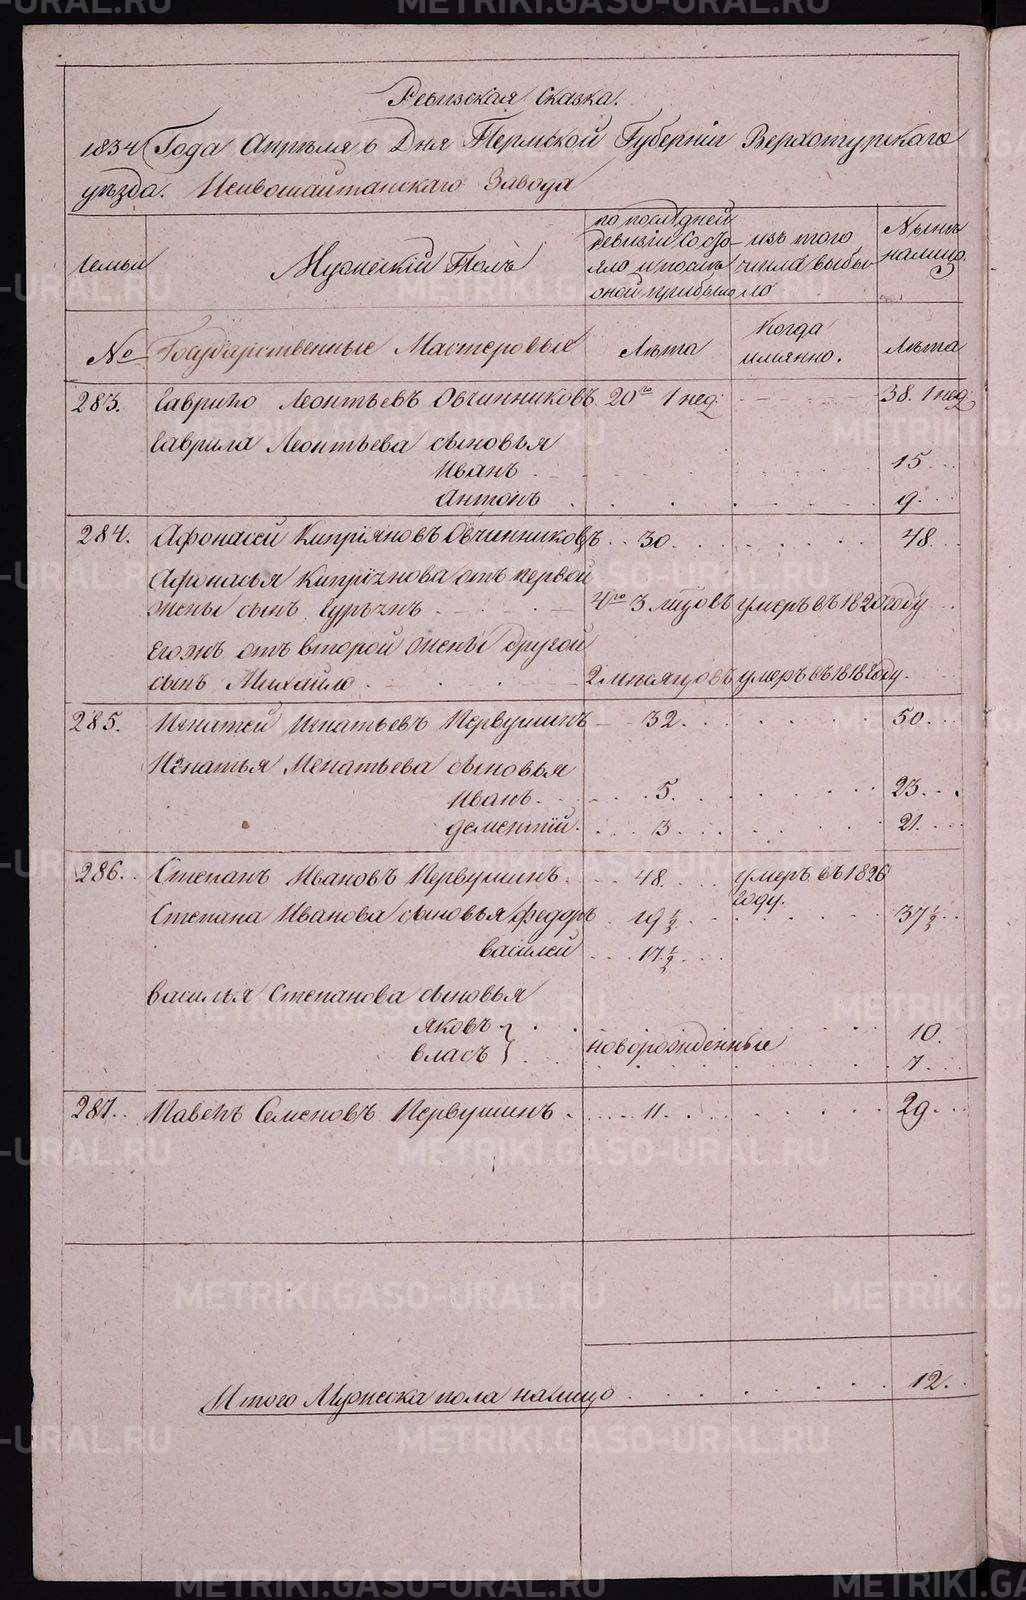 Ревизская Сказка.
1834 Года Апреля 6 Дня Пермской Губернiи Верхотурскаго
уѣзда. Нейвошайтанскаго Завода
Семьи
Мужескiй Полъ
по последней ревизiи состояло и после оной прибыло
изъ того числа выбыло
Нынѣ налицо.
№
Государственные Мастеровые
Лѣта
Когда имянно.
Лѣта
283. Гаврило Леонтьевъ Овчинниковъ 20ть 1 нед: 38. 1 нед:
Гаврила Леонтьева сыновья
Иванъ 15
Антонъ 9
284. Афонасей Кипрiяновъ Овчинниковъ 30. 48
Афонасья Кипрiянова отъ первой
жены сынъ 3 умеръ въ году
Его жъ отъ второй жены другой
сынъ Михайло 2 месяцовъ умеръ въ 1818 году.
285. Игнатей Игнатьевъ Первушинъ 32. 50.
Игнатья Игнатьева сыновья
Иванъ. 5. 23.
Дементiй. 3 21.
286. Степанъ Ивановъ Первушинъ. 48. умеръ въ 1826
году.
Степана Иванова сыновья Федоръ 19 ½ 37 ½
Василей 17. ½
Василья Степанова сыновья
Яковъ 10.
новорожденные
Власъ 7
287. Павелъ Семеновъ Первушинъ. 11. 29.
Итого Мужеска пола налицо 12.
METRIKI.GASO-URAL.RU